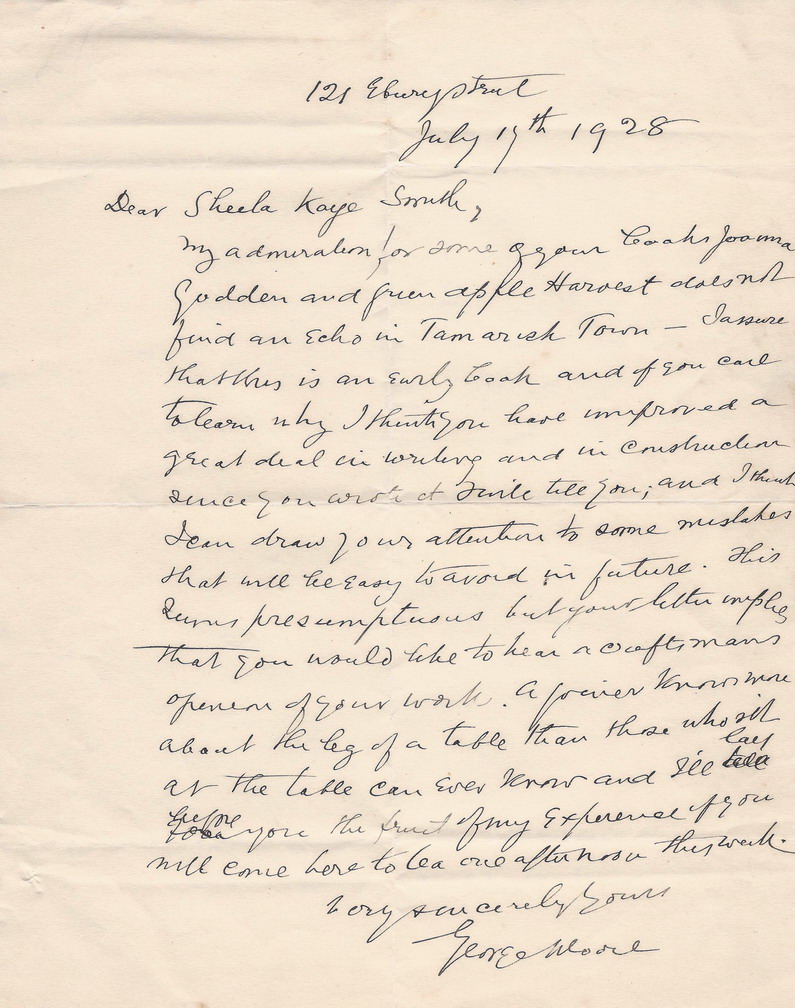 121 Ebury Street
July 19th 1928
Dear Sheela Kaye Smith,
My admiration for some of your books Joanna
Godden and Green apple Harvest does not
find an Echo in Tamarisk Town — I assure
that this is an Early book and if you care
to learn why I think you have improved a
great deal in writing and in construction
since you wrote it I will tell you; and I think
I can draw your attention to some mistakes
that will be easy to avoid in future. This
seems presumptuous but your letter implies
that you would like to hear a craftsman's
openion of your work. A joiner knows more
about the leg of a table than those who sit
at the table can ever know and I'll lay
before you the fruit of my Experience if you
will come here to tea one afternoon this week.
Very sincerely yours
George Moore